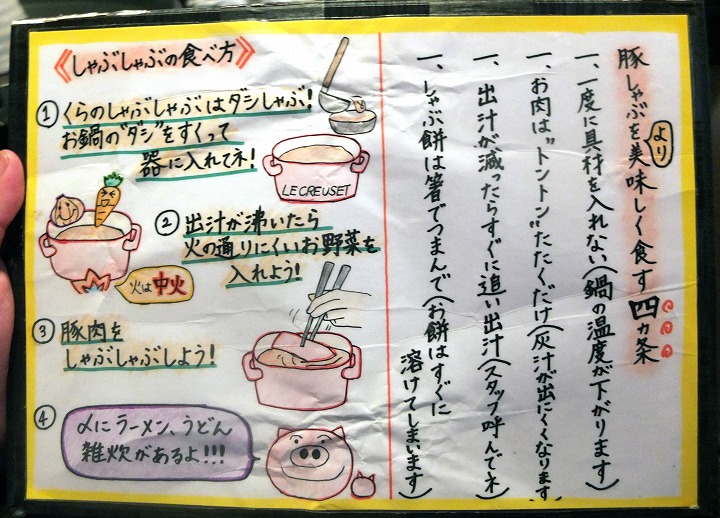 《しゃぶしゃぶの食べ方》
① くらのしゃぶしゃぶはダシしゃぶ!
お鍋の"ダシ"をすくって
器に入れてネ!
LE CREUSET
② 出汁が沸いたら
火の通りにくいお野菜を
入れよう!
火は中火
③ 豚肉を
しゃぶしゃぶしよう!
④ 〆にラーメン、うどん
雑炊があるよ!!!
豚しゃぶをより美味しく食す四ヵ条
一、一度に具材を入れない(鍋の温度が下がります)
一、お肉は"トントン"たたくだけ(灰汁が出にくくなります)
一、出汁が減ったらすぐに追い出汁(スタッフ呼んでネ)
一、しゃぶ餅は箸でつまんで(お餅はすぐに
溶けてしまいます)